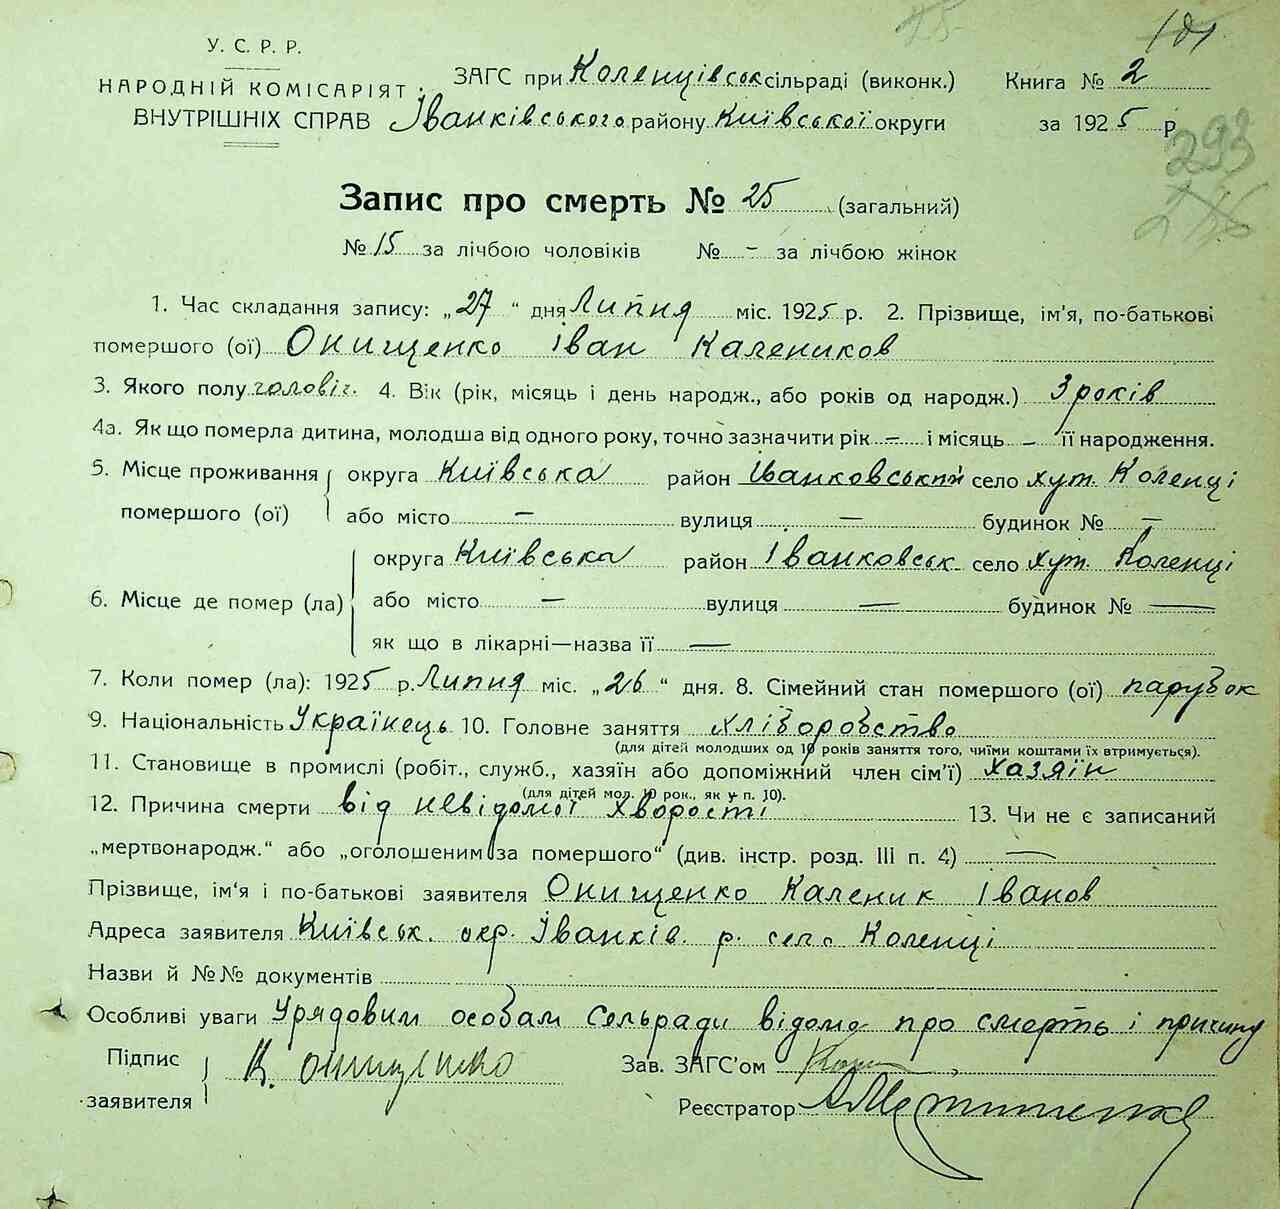 101
У. С. Р. Р.
НАРОДНІЙ КОМІСАРІЯТ
ВНУТРІШНІХ СПРАВ
ЗАГС при Коленцівськ сільраді (виконк.)
Іванківського району Київської округи
Книга № 2
за 1925 р.
293
Запис про смерть № 25 (загальний)
№ 15 за лічбою чоловіків № – за лічбою жінок
1. Час складання запису: „27“ дня Липня міс. 1925 р. 2. Прізвище, ім'я, по-батькові
помершого (ої) Онищенко Іван Калеников
3. Якого полу чоловіч. 4. Вік (рік, місяць і день народж., або років од народж.) 3 років
4а. Як що померла дитина, молодша від одного року, точно зазначити рік – і місяць – її народження.
5. Місце проживання помершого (ої) округа Київська район Іванковський село хут. Коленці
або місто – вулиця – будинок № –
6. Місце де помер (ла) округа Київська район Іванковськ село хут. Коленці
або місто – вулиця – будинок № –
як що в лікарні—назва її –
7. Коли помер (ла): 1925 р. Липня міс. „26“ дня. 8. Сімейний стан помершого (ої) парубок
9. Національність Українець 10. Головне заняття хліборобство
(для дітей молодших од 10 років заняття того, чиїми коштами їх втримується).
11. Становище в промислі (робіт., служб., хазяїн або допоміжний член сім'ї) хазяїн
(для дітей мол. 10 рок., як у п. 10).
12. Причина смерти від невідомої хворости 13. Чи не є записаний
„мертвонародж.“ або „оголошеним за помершого“ (див. інстр. розд. III п. 4) –
Прізвище, ім'я і по-батькові заявителя Онищенко Каленик Іванов
Адреса заявителя Київськ. окр. Іванків. р. село Коленці
Назви й №№ документів
Особливі уваги Урядовим особам Сельради відомо про смерть і причину
Підпис заявителя К. Онищенко
Зав. ЗАГС'ом
Реєстратор